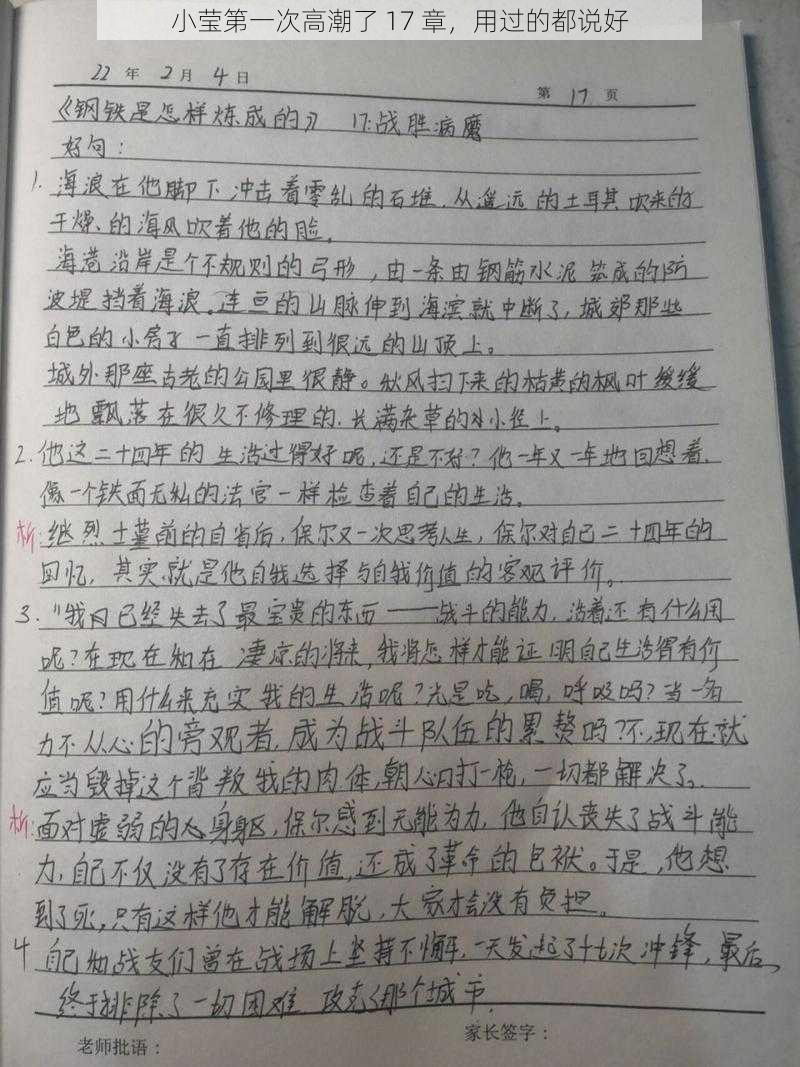 小莹第一次高潮了 17 章，用过的都说好
22 年 2 月 4 日
第 17 页
《钢铁是怎样炼成的》 17.战胜病魔
好句：
1. 海浪在他脚下冲击着零乱的石堆，从遥远的土耳其吹来的
干燥的海风吹着他的脸。
海港沿岸是个不规则的弓形，由一条由钢筋水泥筑成的防
波堤挡着海浪。连亘的山脉伸到海滨就中断了，城郊那些
白色的小房子一直排列到很远的山顶上。
城外那座古老的公园里很静。秋风扫下来的枯黄的枫叶缓缓
地飘落在很久不修理的、长满杂草的小径上。
2. 他这二十四年的生活过得好呢，还是不好？他一年又一年地回想着，
像一个铁面无私的法官一样检查着自己的生活。
析：继烈士墓前的自省后，保尔又一次思考人生，保尔对自己二十四年的
回忆，其实就是他自我选择与自我价值的客观评价。
3. "我已经失去了最宝贵的东西——战斗的能力，活着还有什么用
呢？在现在和在凄凉的将来，我将怎样才能证明自己生活得有价
值呢？用什么来充实我的生活呢？光是吃，喝，呼吸吗？当一名
力不从心的旁观者，成为战斗队伍的累赘吗？不，现在就
应当毁掉这个背叛我的肉体，朝心口打一枪，一切都解决了。
析：面对虚弱的身躯，保尔感到无能为力，他自认丧失了战斗能
力，自己不仅没有了存在价值，还成了革命的包袱。于是，他想
到了死，只有这样他才能解脱，大家才会没有负担。
4 自己和战友们曾在战场上坚持不懈，一天发起了十七次冲锋，最后
终于排除了一切困难 攻克了那个城市.
老师批语：
家长签字：